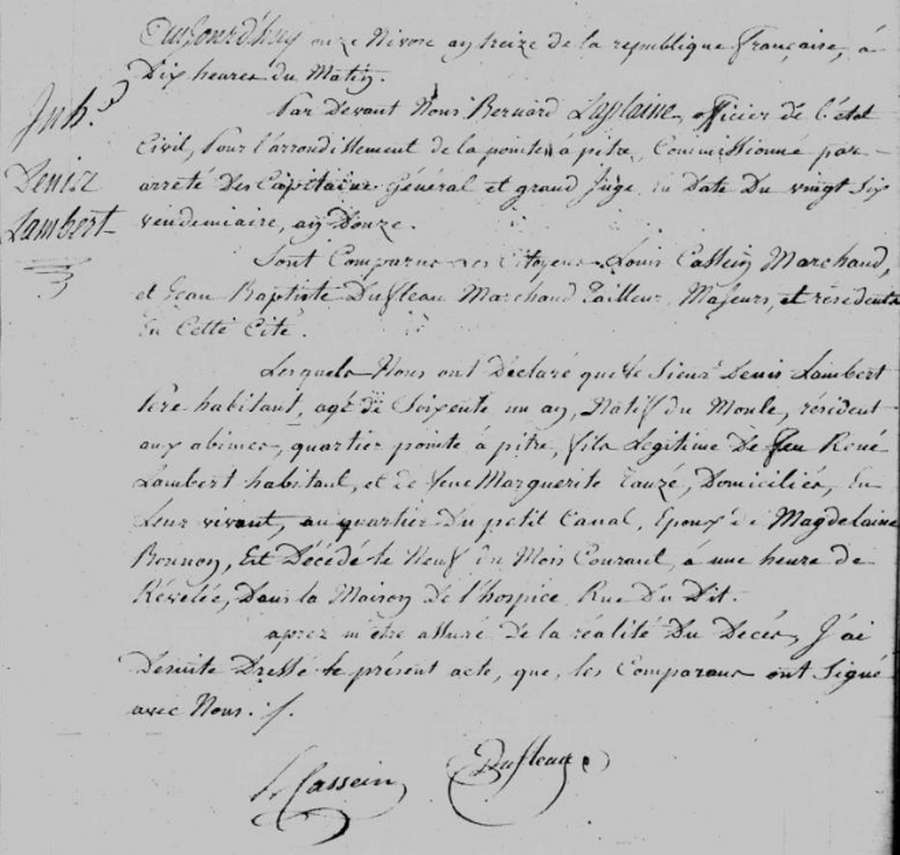 Aujourd'huy onze Nivose an treize de la republique française, à
Dix heures du Matin.
Par Devant Nous Bernard Laplaine, officier de l'état
Civil, Pour l'arrondissement de la pointe à pitre, Commissionné par
arreté Des Capitaine Général et grand Juge, en Date Du vingt Six
vendemiaire, an Douze.
Inh.
Denis
Lambert
Sont Comparus Les Citoyens Louis Cassein Marchand,
et Jean Baptiste Dufleau Marchand Tailleur, Majeurs, et résidents
En Cette Cité.
Lesquels Nous ont Déclaré que le Sieur Denis Lambert
Pere habitant, agé de Soixente un an, Natif du Moule, résident
aux abimes, quartier pointe à pitre, fils Légitime De feu René
Lambert habitant, et de feue Marguerite Cauzé, Domiciliés, En
Leur vivant, au quartier Du petit Canal, Epoux de Magdelaine
Bonnon, Est Décédé le Neuf du Mois Courant, à une heure de
Révelée, Dans la Maison De l'hospice Rue Du Dit.
aprez m'être assuré de la réalité Du Décés, J'ai
Desuite Dressé le présent acte, que les Comparans ont Signé
avec Nous. /.
L. Cassein Dufleau